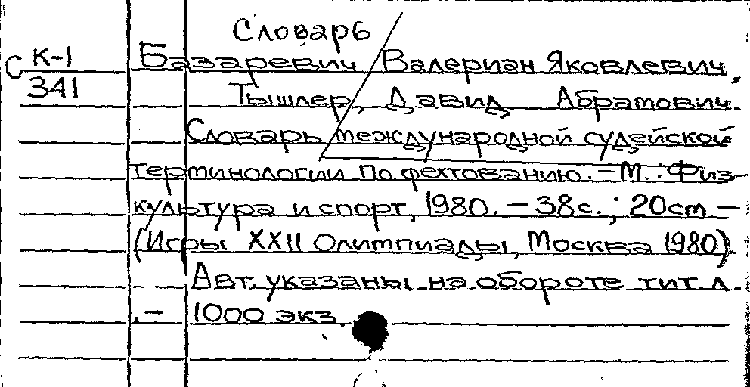 Словарь
С К-1 Базаревич Валериан Яковлевич,
341 Тышлер, Давид Абрамович.
Словарь международной судейской
терминологии по фехтованию. - М.: Физ-
культура и спорт, 1980. - 38с.; 20см -
(Игры XXII Олимпиады, Москва 1980)
Авт. указаны на обороте тит. л.
.- 1000 экз.